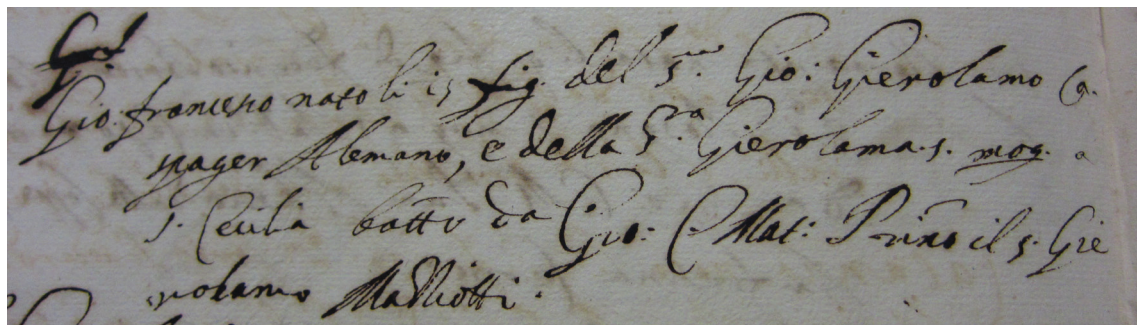 Gio. francesco nato li 15 fig. del S.re Gio: Gierolamo Ca.
spager Alemano, e della S.ra Gierolama s. mog. a
S. Cecilia batto da Gio: C. Mat: Prino il S. Gie
rolamo Mariotti.